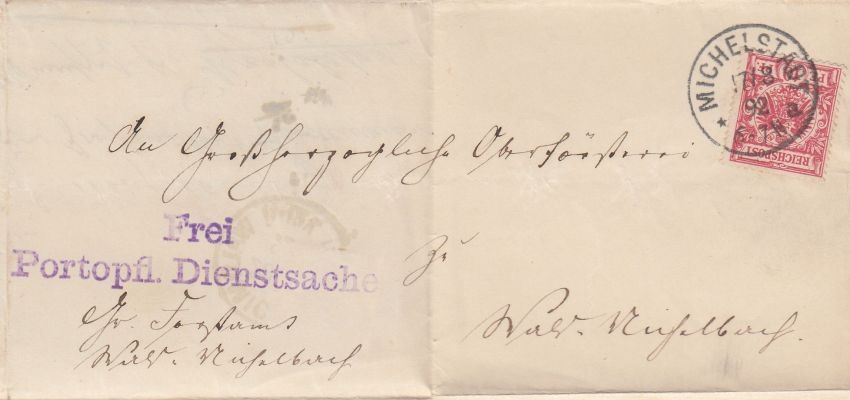 MICHELSTADT
17/8
92
REICHSPOST
An Großherzogliche Oberförsterei
Frei
Portopfl. Dienstsache
zu
Gr. Forstamt
Wald-Michelbach
Wald-Michelbach.